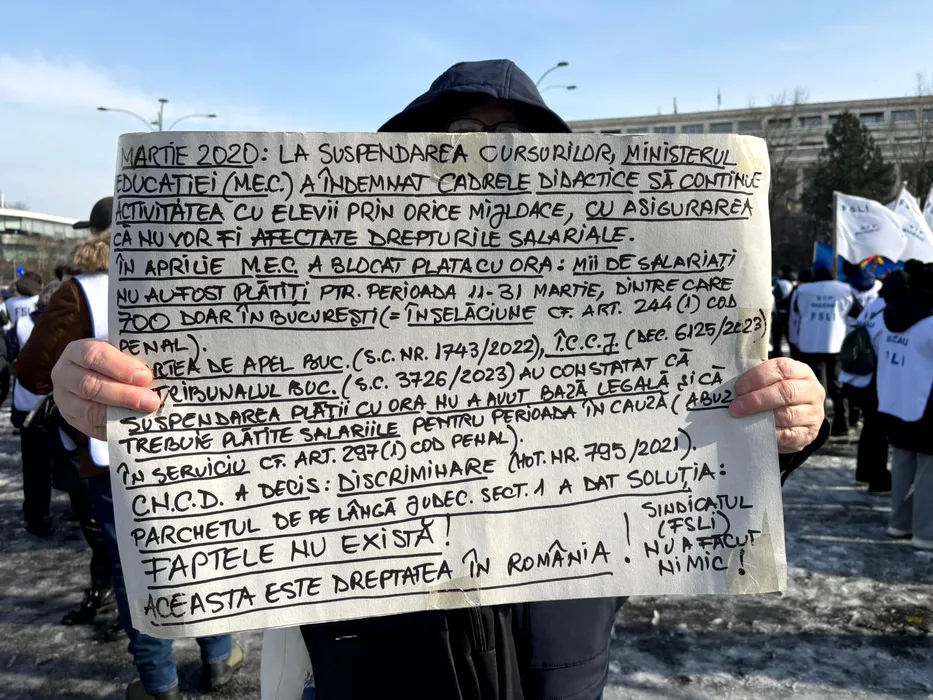 MARTIE 2020: LA SUSPENDAREA CURSURILOR, MINISTERUL
EDUCAȚIEI (M.E.C.) A ÎNDEMNAT CADRELE DIDACTICE SĂ CONTINUE
ACTIVITATEA CU ELEVII PRIN ORICE MIJLOACE, CU ASIGURAREA
CĂ NU VOR FI AFECTATE DREPTURILE SALARIALE.
ÎN APRILIE M.E.C. A BLOCAT PLATA CU ORA: MII DE SALARIAȚI
NU AU FOST PLĂTIȚI PTR. PERIOADA 11-31 MARTIE, DINTRE CARE
700 DOAR ÎN BUCUREȘTI (= ÎNȘELĂCIUNE CF. ART. 244(1) COD
PENAL).
RTEA DE APEL BUC. (S.C. NR. 1743/2022), Î.C.C.J. (DEC. 6125/2023)
TRIBUNALUL BUC. (S.C. 3726/2023) AU CONSTATAT CĂ
SUSPENDAREA PLĂȚII CU ORA NU A AVUT BAZĂ LEGALĂ ȘI CĂ
TREBUIE PLĂTITE SALARIILE PENTRU PERIOADA ÎN CAUZĂ (ABUZ
ÎN SERVICIU CF. ART. 297(1) COD PENAL).
C.N.C.D. A DECIS: DISCRIMINARE (HOT. NR. 795/2021).
PARCHETUL DE PE LÂNGĂ JUDEC. SECT. 1 A DAT SOLUȚIA:
FAPTELE NU EXISTĂ!
ACEASTA ESTE DREPTATEA ÎN ROMÂNIA!
SINDICATUL
(FSLI)
NU A FĂCUT
NIMIC!
FSLI
FSLI